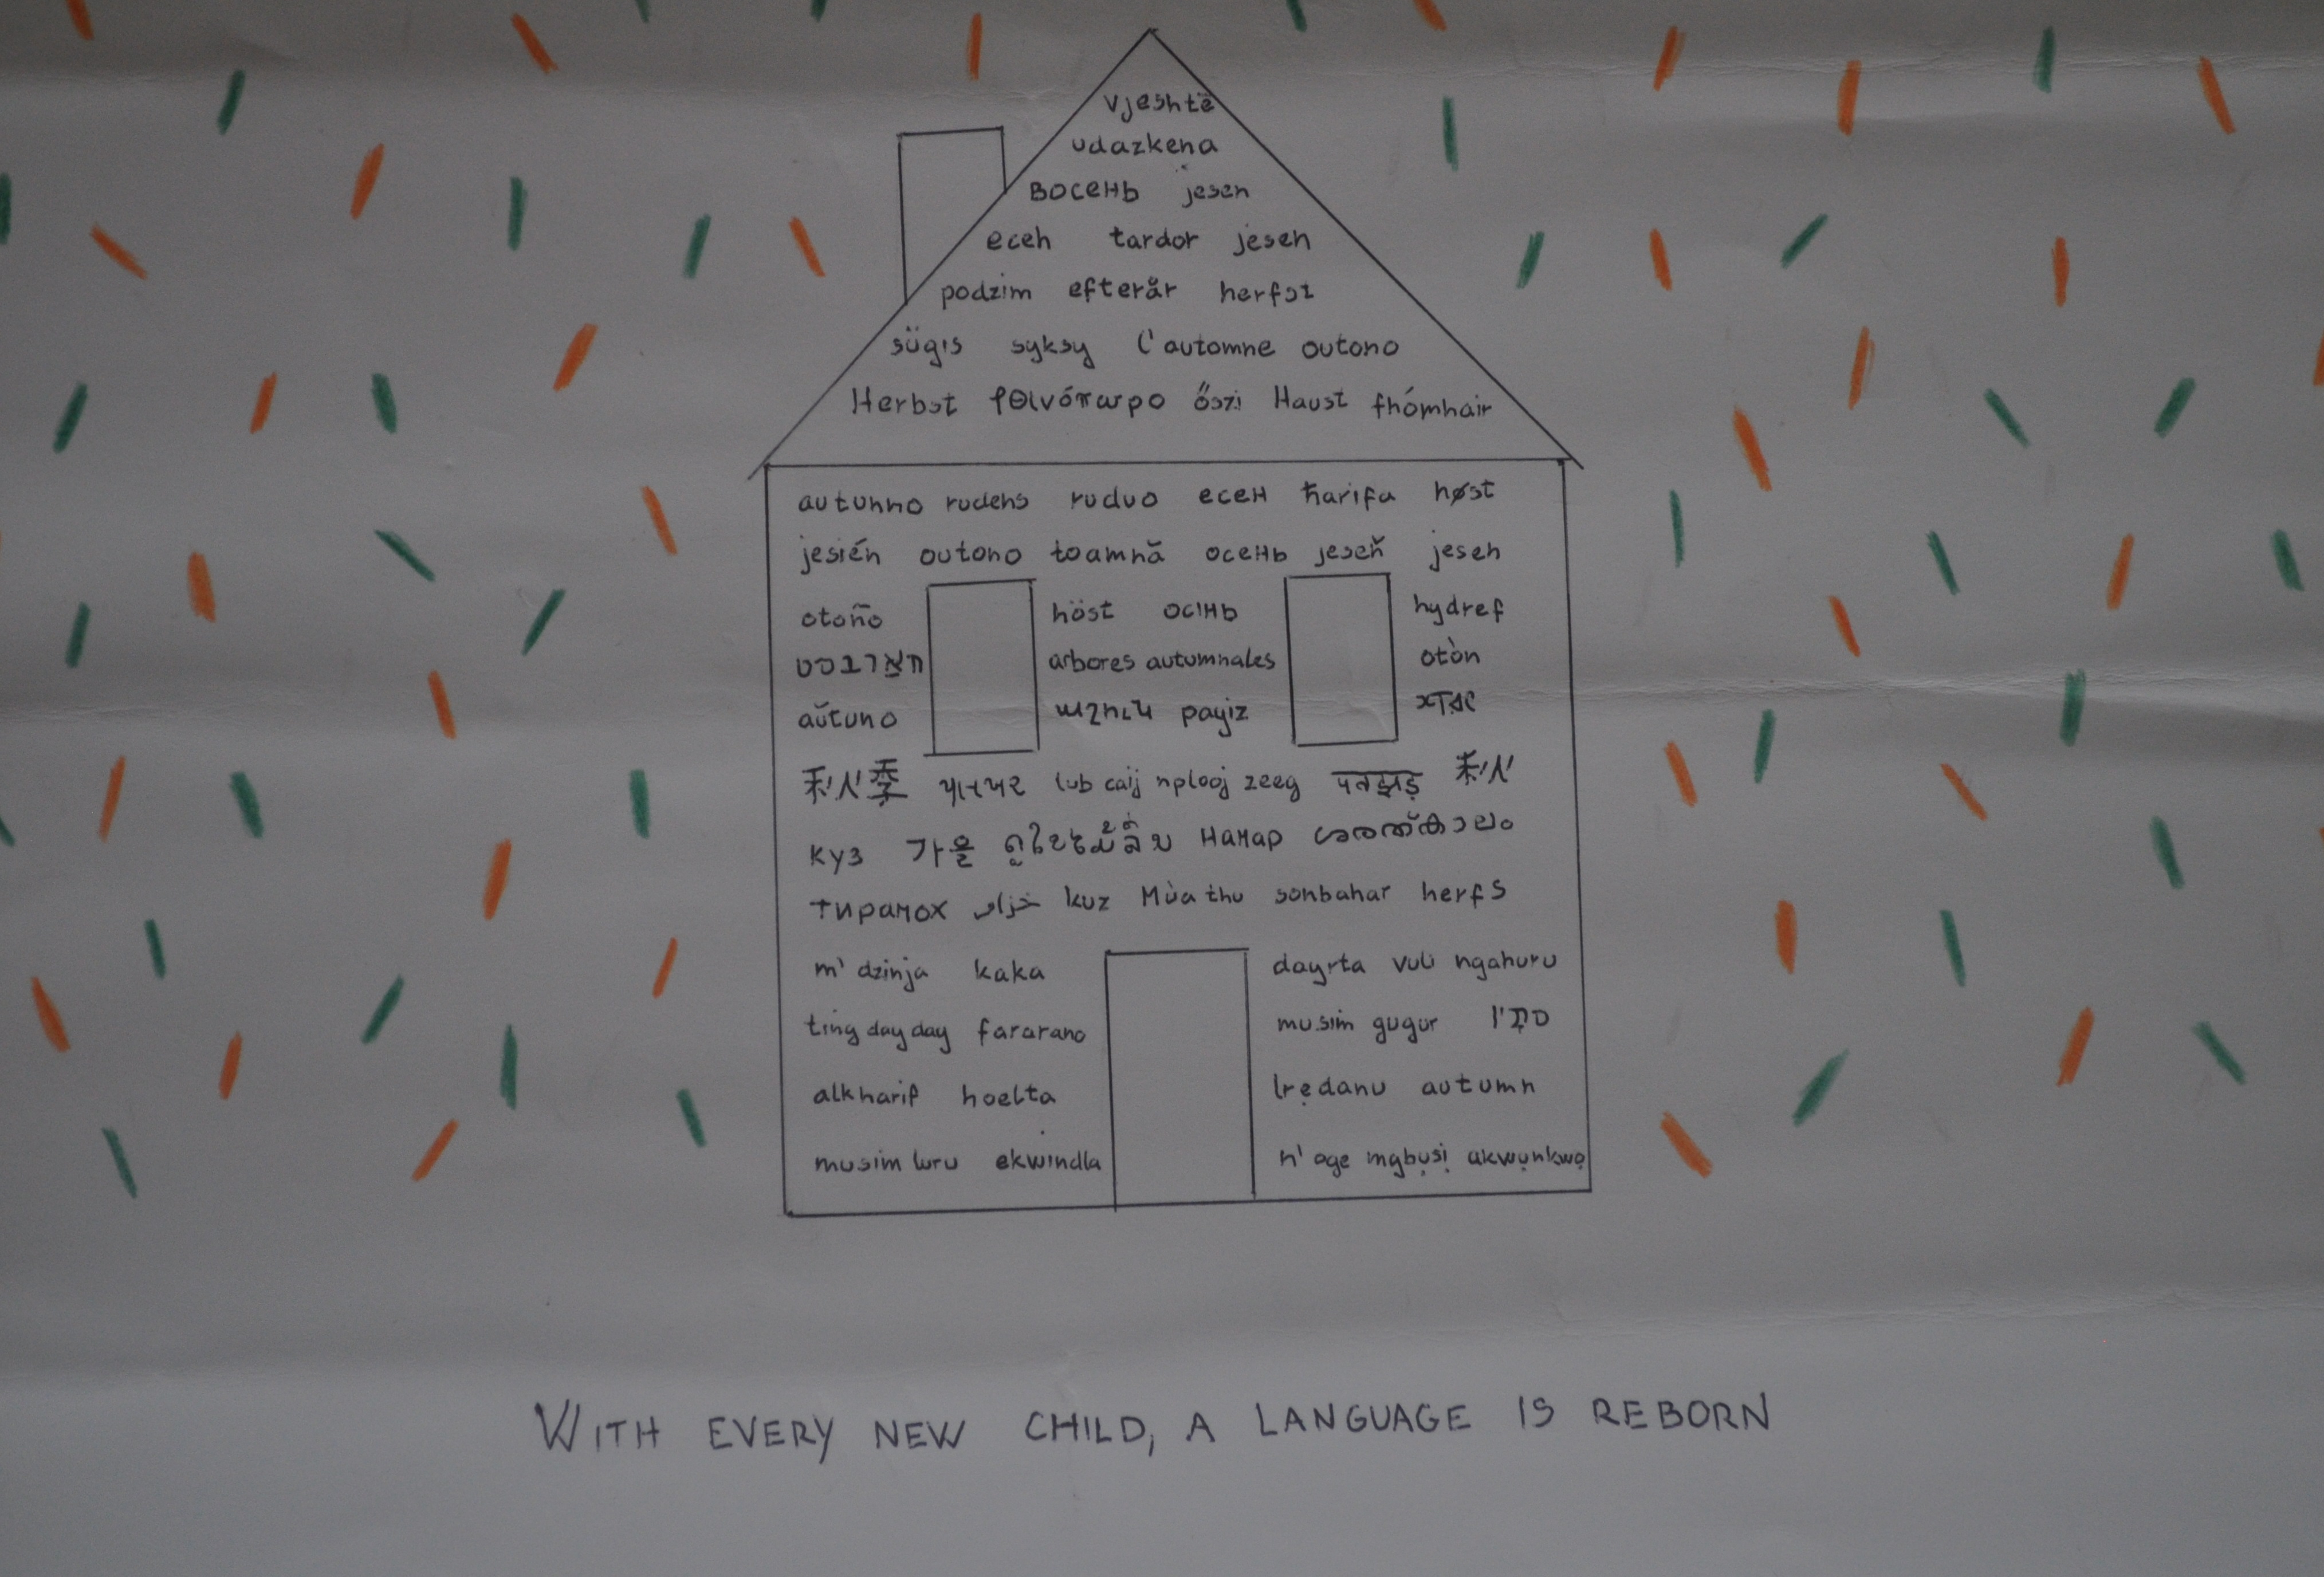 vjeshtë
udazkena
восень jesen
eceh tardor jesen
podzim efterår herfst
sügis syksy l'automne outono
Herbst φθινόπωρο őszi Haust fhómhair
autunno rudens ruduo есен ħarifa høst
jesién outono toamnă осень jeseň jesen
otoño höst осінь hydref
arbores autumnales otòn
aŭtuno աշուն payiz
lub caij nplooj zeeg पतझड़ 秋
күз 가을 намар ശരത്കാലം
тирамох kuz Mùa thu sonbahar herfs
m'dzinja kaka dayrta vuli ngahuru
ting dayday fararano musim gugur
alkharif hoelta Irẹdanu autumn
musim luru ekwindla n'oge mgbụsị akwụnkwọ
WITH EVERY NEW CHILD, A LANGUAGE IS REBORN